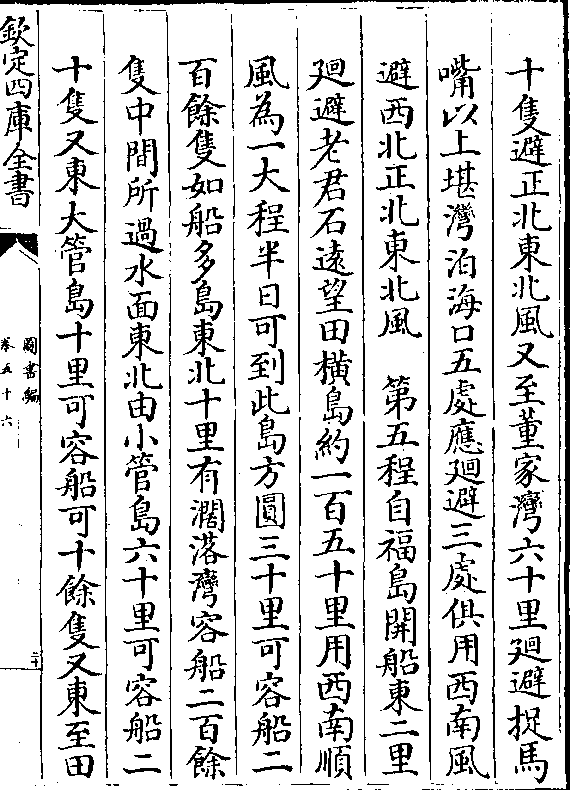 十隻避正北東北風又至董家灣六十里廻避捉馬
嘴以上堪灣泊海口五處應廻避三處俱用西南風
避西北正北東北風　第五程自福島開船東二里
廻避老君石遠望田橫島約一百五十里用西南順
風為一大程半日可到此島方圓三十里可容船二
百餘隻如船多島東北十里有濶落灣容船二百餘
隻中間所過水面東北由小管島六十里可容船二
十隻又東大管島十里可容船可十餘隻又東至田
欽定四庫全書
圖書編
卷五十六
二十